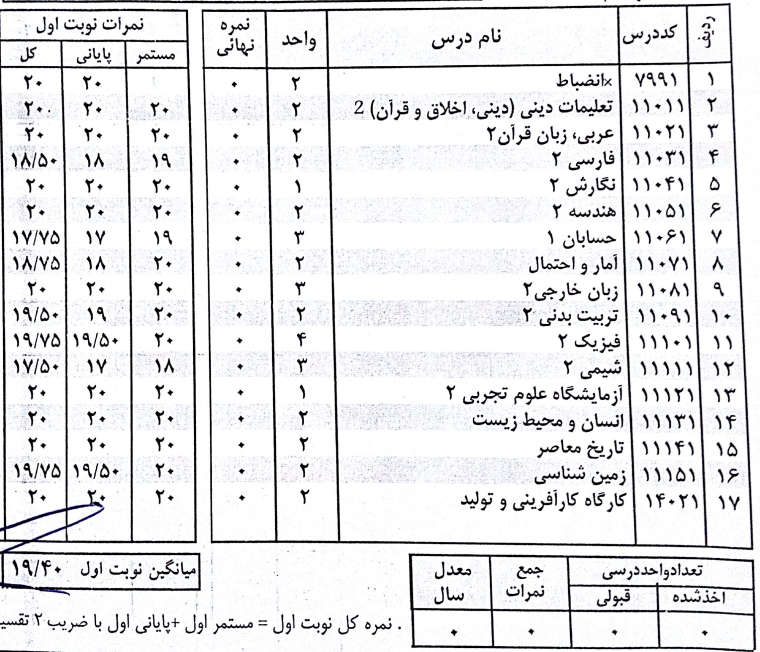 ردیف کددرس نام درس واحد نمره نهائی نمرات نوبت اول
مستمر پایانی کل
۱ ۷۹۹۱ ×انضباط ۲ ۰ ۲۰ ۲۰
۲ ۱۱۰۱۱ تعلیمات دینی (دینی، اخلاق و قرآن) 2 ۲ ۰ ۲۰ ۲۰ ۲۰
۳ ۱۱۰۲۱ عربی، زبان قرآن۲ ۲ ۰ ۲۰ ۲۰ ۲۰
۴ ۱۱۰۳۱ فارسی ۲ ۲ ۰ ۱۹ ۱۸ ۱۸/۵۰
۵ ۱۱۰۴۱ نگارش ۲ ۱ ۰ ۲۰ ۲۰ ۲۰
۶ ۱۱۰۵۱ هندسه ۲ ۲ ۰ ۲۰ ۲۰ ۲۰
۷ ۱۱۰۶۱ حسابان ۱ ۳ ۰ ۱۹ ۱۷ ۱۷/۷۵
۸ ۱۱۰۷۱ آمار و احتمال ۲ ۰ ۲۰ ۱۸ ۱۸/۷۵
۹ ۱۱۰۸۱ زبان خارجی۲ ۳ ۰ ۲۰ ۲۰ ۲۰
۱۰ ۱۱۰۹۱ تربیت بدنی ۲ ۲ ۰ ۲۰ ۱۹ ۱۹/۵۰
۱۱ ۱۱۱۰۱ فیزیک ۲ ۴ ۰ ۲۰ ۱۹/۵۰ ۱۹/۷۵
۱۲ ۱۱۱۱۱ شیمی ۲ ۳ ۰ ۱۸ ۱۷ ۱۷/۵۰
۱۳ ۱۱۱۲۱ آزمایشگاه علوم تجربی ۲ ۱ ۰ ۲۰ ۲۰ ۲۰
۱۴ ۱۱۱۳۱ انسان و محیط زیست ۲ ۰ ۲۰ ۲۰ ۲۰
۱۵ ۱۱۱۴۱ تاریخ معاصر ۲ ۰ ۲۰ ۲۰ ۲۰
۱۶ ۱۱۱۵۱ زمین شناسی ۲ ۰ ۲۰ ۱۹/۵۰ ۱۹/۷۵
۱۷ ۱۴۰۲۱ کارگاه کارآفرینی و تولید ۲ ۰ ۲۰ ۲۰ ۲۰
تعدادواحددرسی جمع نمرات معدل سال
اخذشده قبولی
۰ ۰ ۰ ۰
میانگین نوبت اول ۱۹/۴۰
. نمره کل نوبت اول = مستمر اول +پایانی اول با ضریب ۲ تقسی